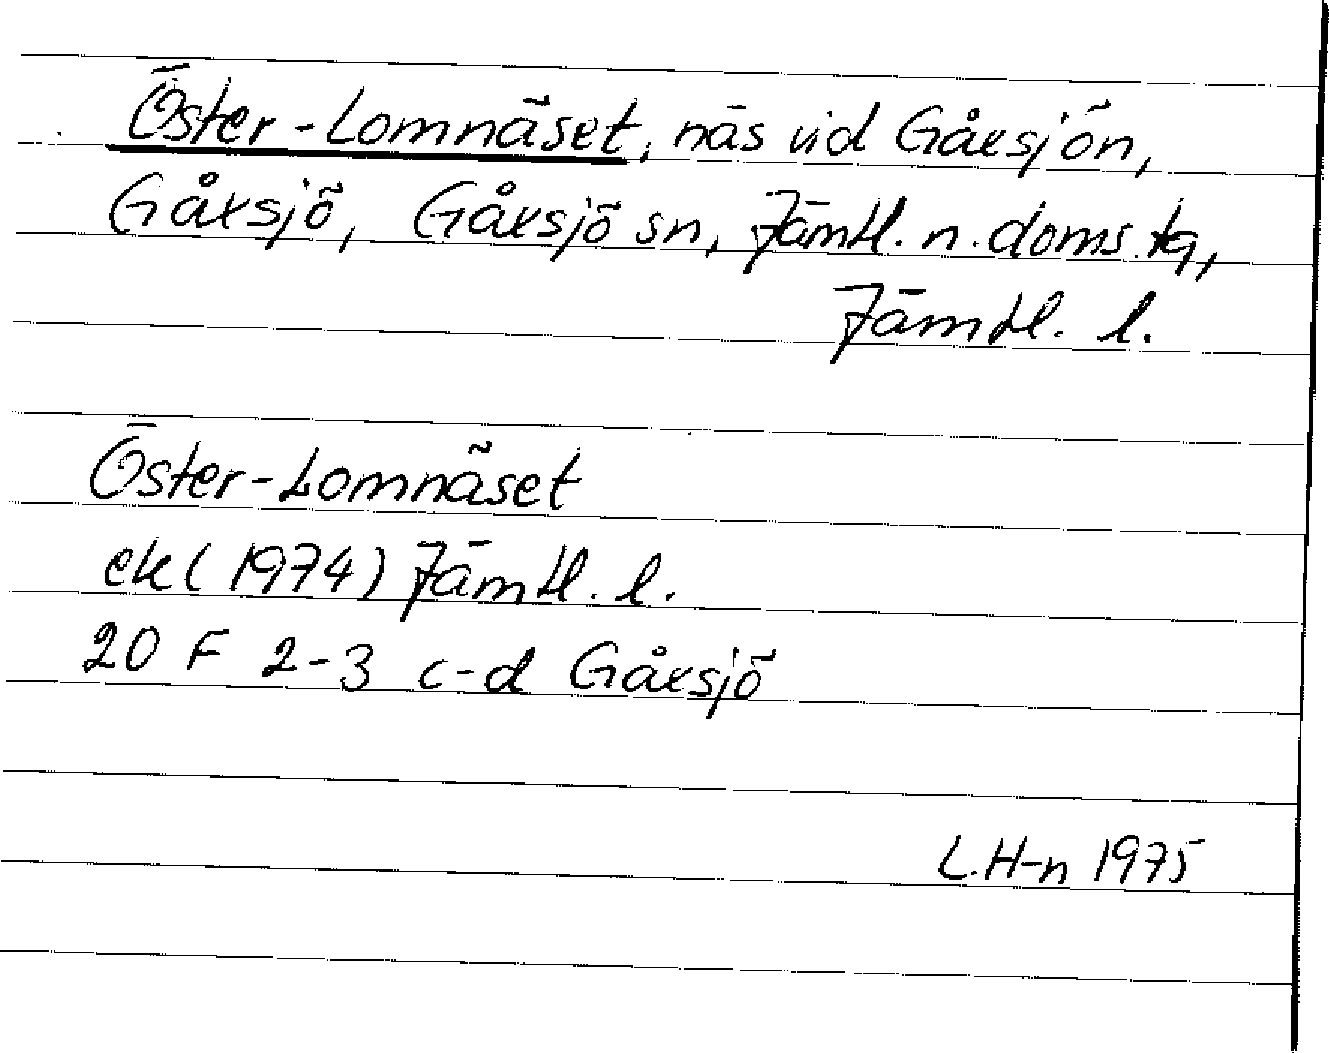 Öster-Lomnäset, näs vid Gåxsjön,
Gåxsjö, Gåxsjö sn, Jämtl. n. doms. tg,
Jämtl. l.
Öster-Lomnäset
ek (1974) Jämtl. l.
20 F 2-3 c-d Gåxsjö
L.H-n 1975